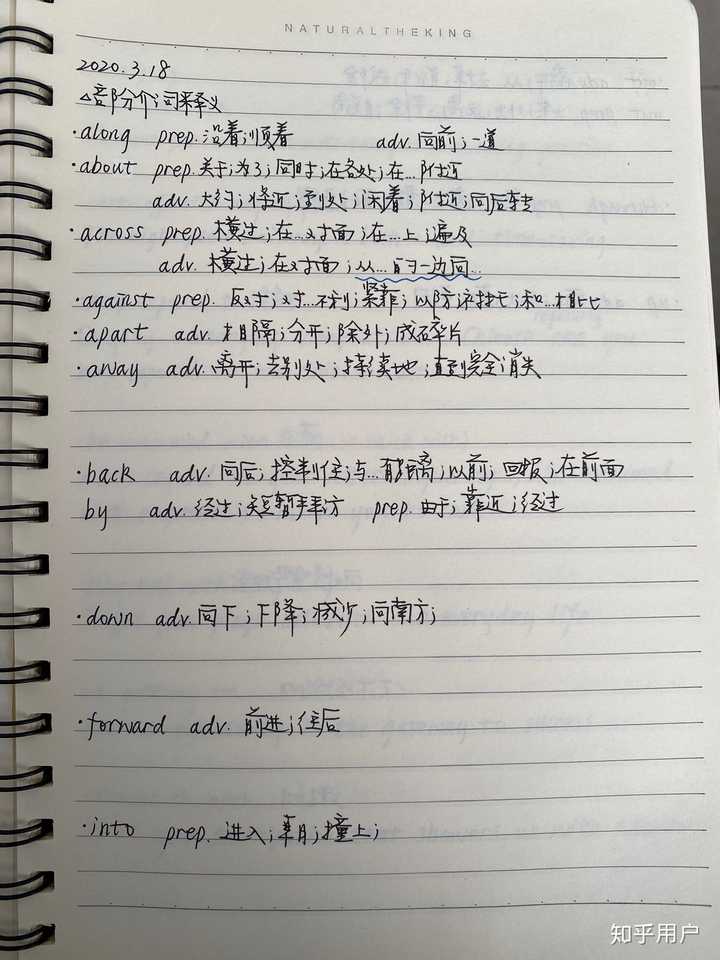 NATURALTHEKING
2020.3.18
△部分介词释义
·along prep.沿着;顺着 adv.向前;一道
·about prep.关于;为了;同时;在各处;在…附近
adv.大约;将近;到处;闲着;附近;向后转
·across prep.横过;在…对面;在…上;遍及
adv.横过;在对面;从…的一边向…
·against prep.反对;对…不利;紧靠;以防;和…相比
·apart adv.相隔;分开;除外;成碎片
·away adv.离开;去别处;持续地;直到完全消失
·back adv.向后;控制住;与…有距离;以前;回报;在前面
by adv.经过;短暂拜访 prep.由于;靠近;经过
·down adv.向下;下降;减少;向南方;
·forward adv.前进;往后
·into prep.进入;撞上;
知乎用户